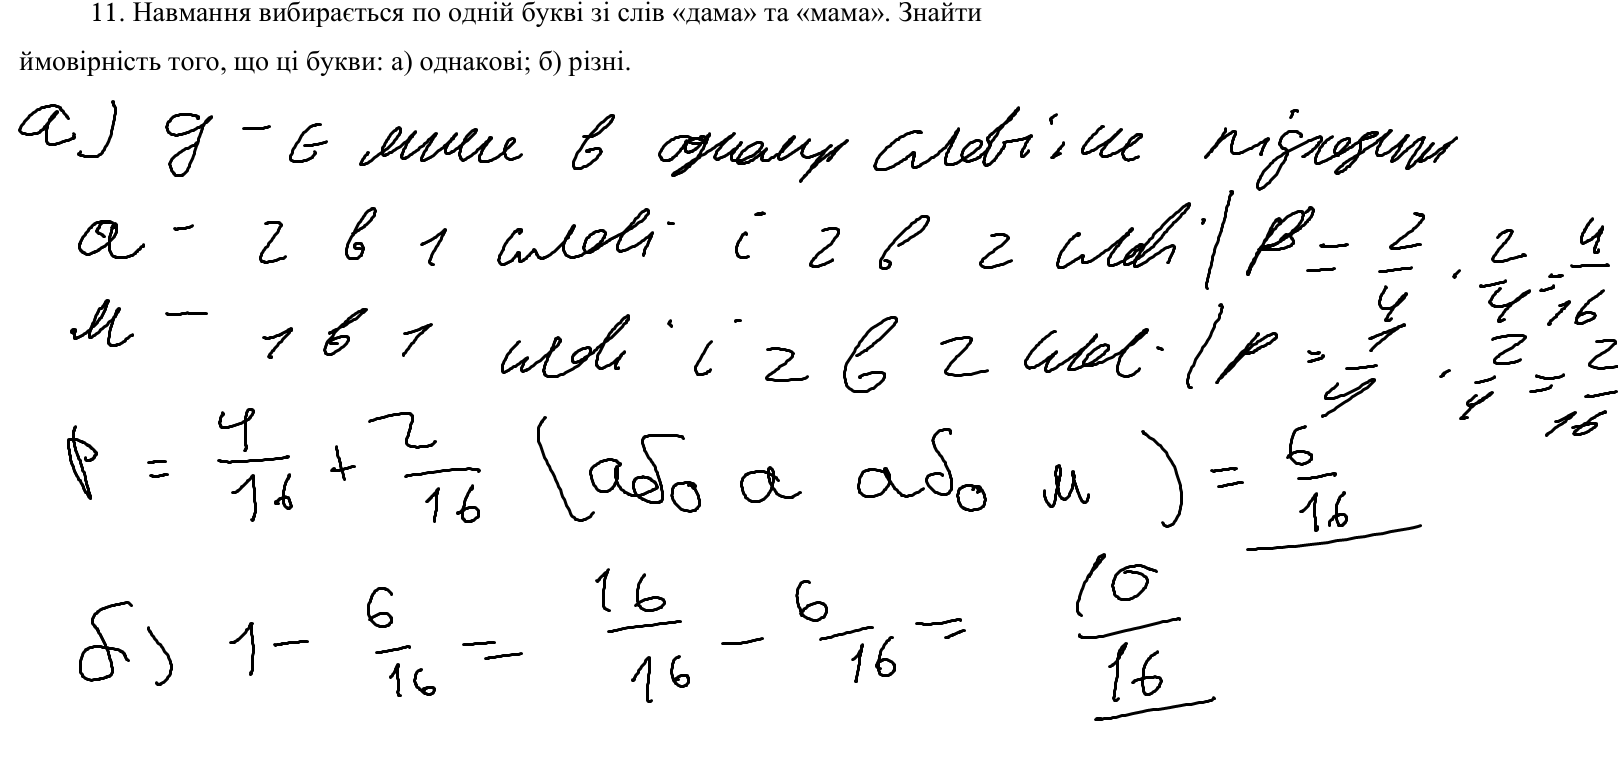 11. Навмання вибирається по одній букві зі слів «дама» та «мама». Знайти
ймовірність того, що ці букви: а) однакові; б) різні.
а) д - є лише в одному слові, не підходить
а - 2 в 1 слові і 2 в 2 слові / P = 2/4 · 2/4 = 4/16
м - 1 в 1 слові і 2 в 2 слові / P = 1/4 · 2/4 = 2/16
P = 4/16 + 2/16 (або а або м) = 6/16
б) 1 - 6/16 = 16/16 - 6/16 = 10/16